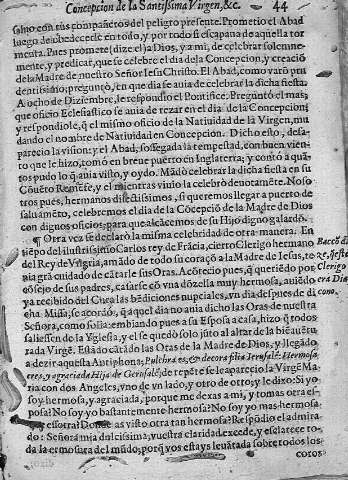 Concepcion de la Santissima Virgen, &c. 44
salvo con sus compañeros del peligro presente. Prometio el Abad
luego de obedecerle en todo, y por todo si escapana de aquella tor
menta. Pues promete (dize el) a Dios, y a mi, de celebrar solenne-
mente, y predicar, que se celebre el dia de la Concepcion, y creació
de la Madre de nuestro Señor Iesu Christo. El Abad, como varõ pru
dentissimo, preguntò, en que dia se auia de celebrar la dicha fiesta.
A ocho de Diziembre, le respondio el Pontifice. Preguntò el mas:
que oficio Eclesiastico se auia de rezar en el dia de la Concepcion;
y respondiole, q̃ el mismo oficio de la Natiuidad de la Virgen, mu
dando el nombre de Natiuidad en Concepcion. Dicho esto, desa-
parecio la vision: y el Abad, sossegada la tempestad, con buen vien-
to que le hizo, tomó en breue puerto en Inglaterra; y contó a quã-
tos pudo lo q̃ auia visto, y oydo. Mãdò celebrar la dicha fiesta en su
Cõuẽto Remẽse, y el mientras viuio la celebrò deuotamẽte. Noso
tros pues, hermanos dilectissimos, si queremos llegar a puerto de
saluamẽto, celebremos el dia de la Cõcepciõ de la Madre de Dios
con dignos oficios; para que alcãcemos de su Hijo digno galardõ.
¶ Otra vez se declarò la misma celebridad de otra manera. En
tiẽpo del ilustrissimo Carlos rey de Frãcia, cierto Clerigo hermano
del Rey de Vngria, amado de todo su coraçõ a la Madre de Iesus, te
nia grã cuidado de cãtarle sus Oras. Acõtecio pues, q̃ queriẽdo por
cõsejo de sus padres, casarse cõ vna dõzella muy hermosa, auiẽdo
ya recibido del Cura las bẽdiciones nupciales, vn dia despues de di
cha Missa, se acordò, q̃ aquel dia no auia dicho las Oras de nuestra
Señora, como solia: embiando pues a su Esposa a casa, hizo q̃ todos
saliessen de la Yglesia, y el se quedò solo jũto al altar de la biẽauẽtu
rada Virgẽ. Estãdo cãtãdo las Oras de la Madre de Dios, y llegãdo
a dezir aquella Antiphona; Pulchra es, & decora filia Ierusalẽ: Hermosa
eres, y agraciada Hija de Gerusalẽ, de repẽte se le aparecio la Virgẽ Ma
ria con dos Angeles, vno de vn lado, y otro de otro; y le dixo: Si yo
soy hermosa, y agraciada, porque me dexas a mi, y tomas otra es-
posa? No soy yo bastantemente hermosa? No soy yo mas hermosa
q̃ essotra? Donde as visto otra tan hermosa? Respõdio el admira-
do: Señora mia dulcissima, vuestra claridad excede, y esclarece to-
da la ermosura del mũdo, porq̃ vos estays leuãtada sobre todos los
coros